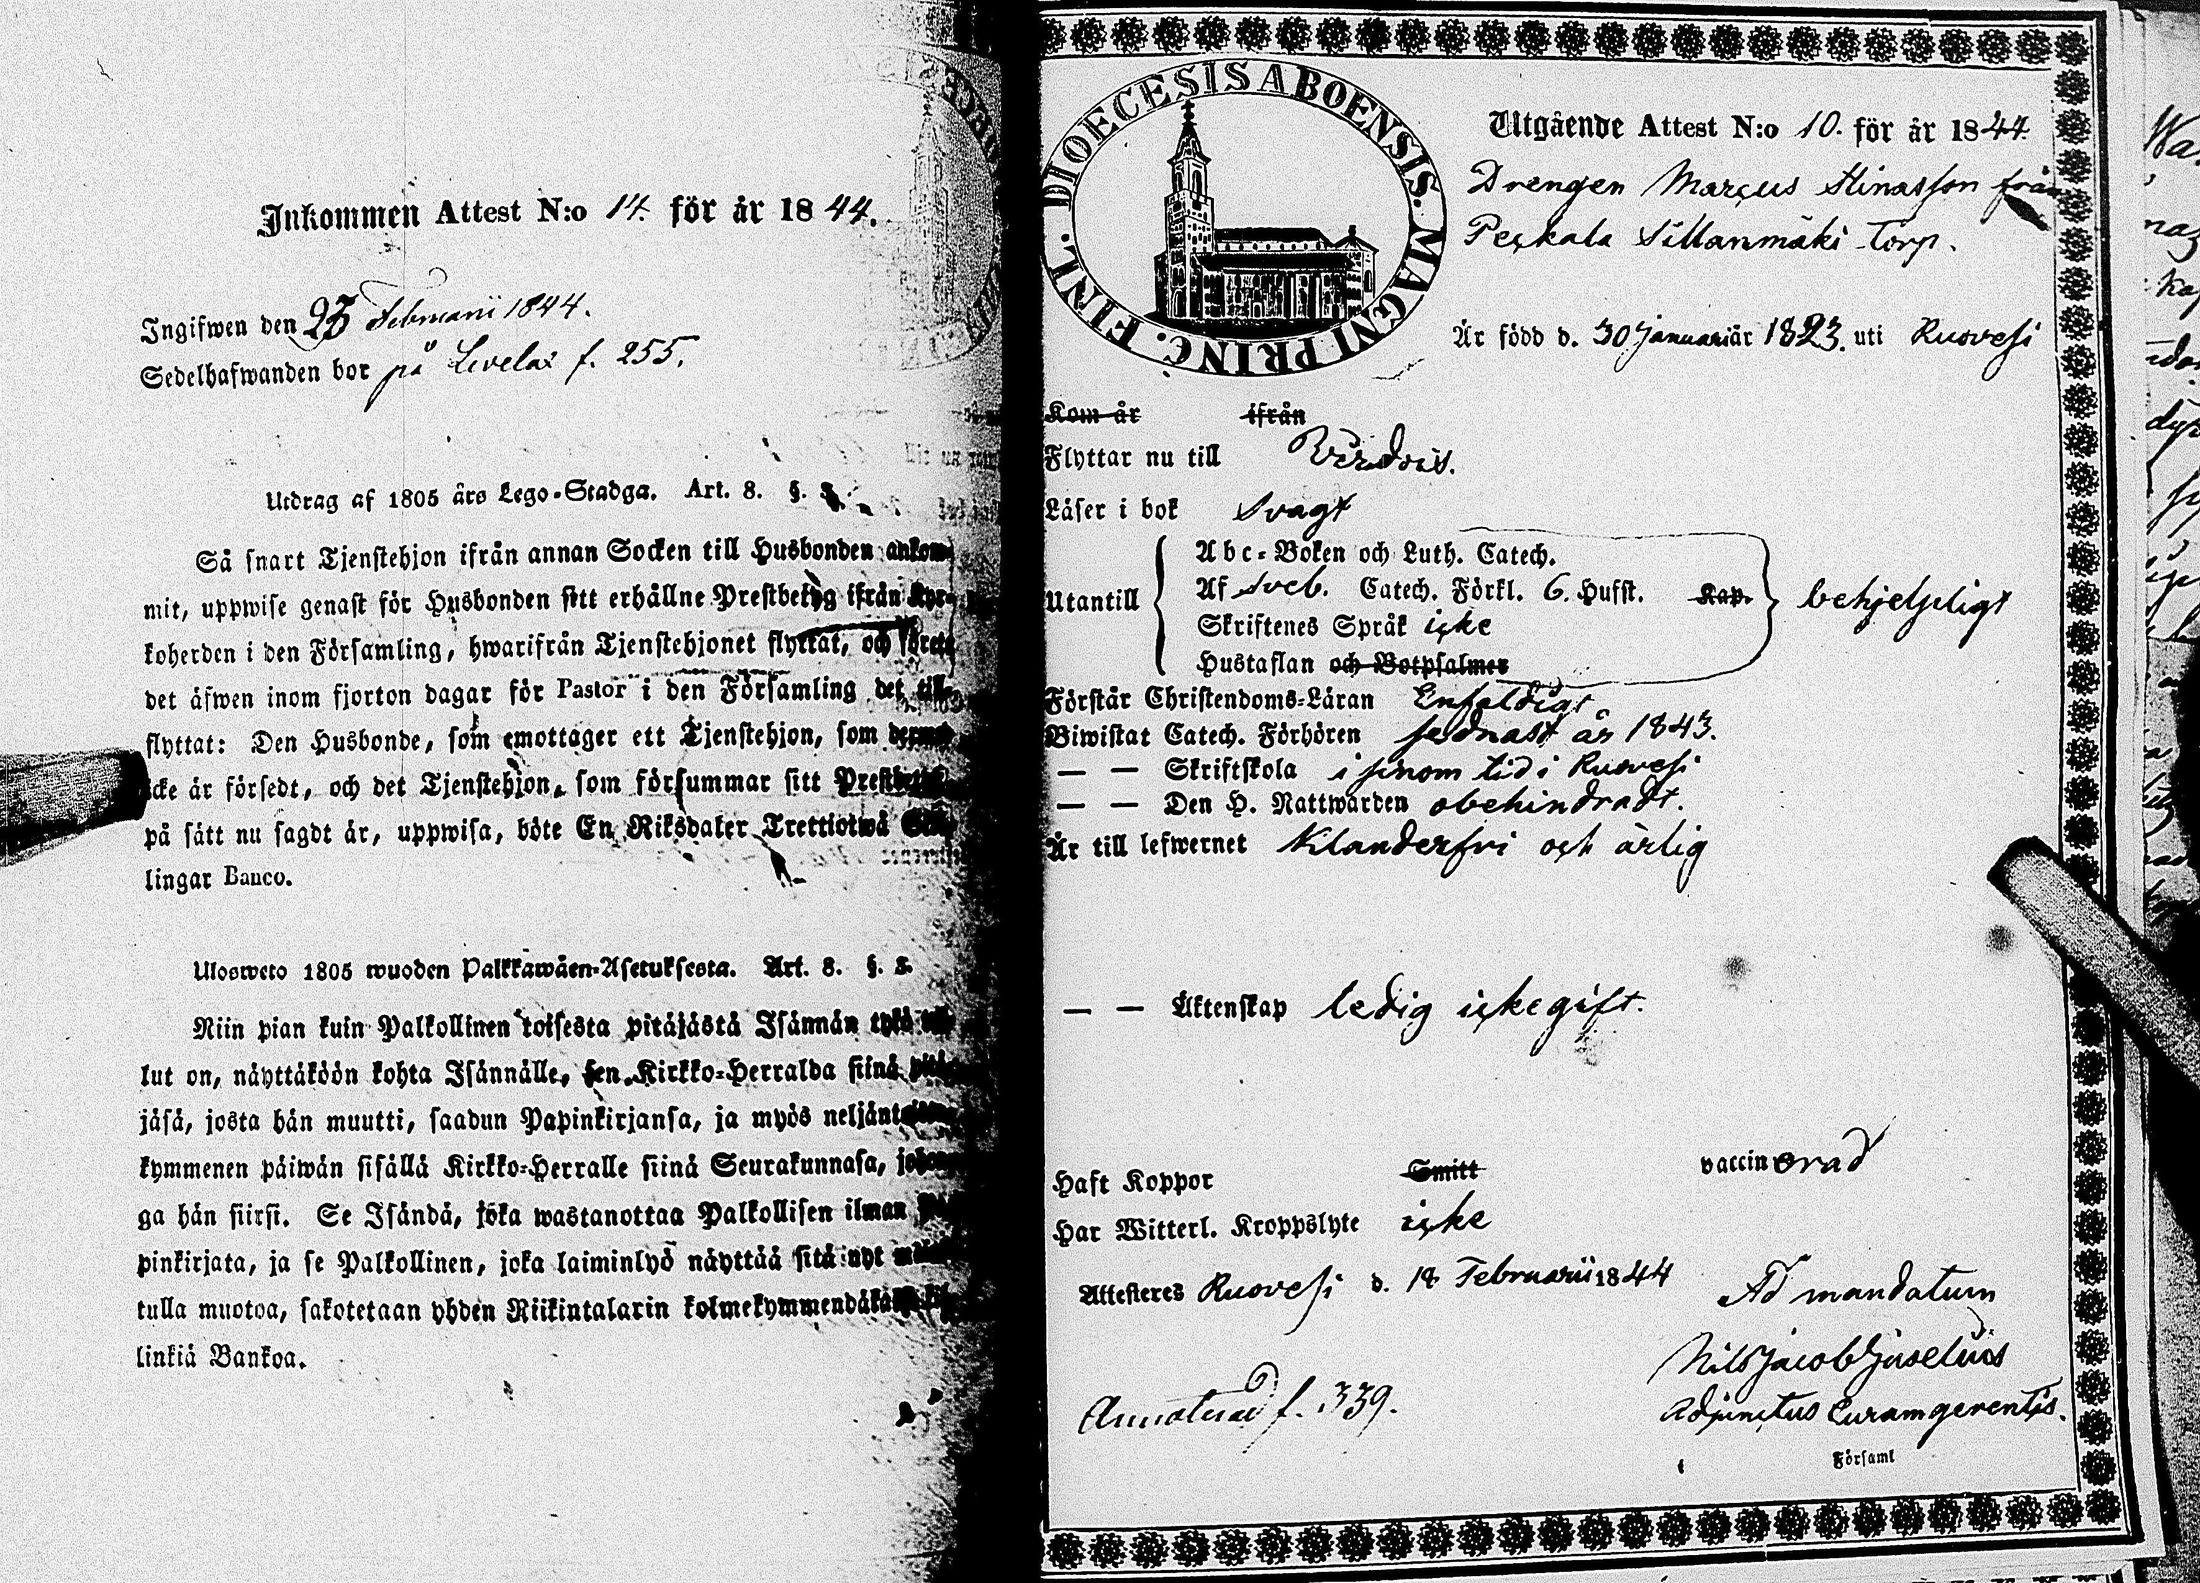 Inkommen Attest N:o 14. för år 1844.
Ingifwen den 23 Februarii 1844.
Sedelhafwanden bor på Levelax f. 255.
Utdrag af 1805 års Lego-Stadga. Art. 8. §. 2.
Så snart Tjenstehjon ifrån annan Socken till Husbonden ankom-
mit, uppwise genast för Husbonden sitt erhållne Prestbetyg ifrån Kyr-
koherden i den Församling, hwarifrån Tjenstehjonet flyttat, och förete
det äfwen inom fjorton dagar för Pastor i den Församling det till-
flyttat: Den Husbonde, som emottager ett Tjenstehjon, som dermed
icke är försedt, och det Tjenstehjon, som försummar sitt Prestbetyg,
på sätt nu sagdt är, uppwisa, böte En Riksdaler Trettiotwå Skil-
lingar Banco.
Ulosweto 1805 wuoden Palkkawäen-Asetuksesta. Art. 8. §. 2.
Niin pian kuin Palkollinen toisesta pitäjästä Isännän tykö tul-
lut on, näyttäköön kohta Isännälle, sen Kirkko-Herralda siinä pitä-
jäsä, josta hän muutti, saadun Papinkirjansa, ja myös neljäntoista-
kymmenen päiwän sisällä Kirkko-Herralle siinä Seurakunnasa, johon-
ga hän siirsi. Se Isändä, joka wastanottaa Palkollisen ilman Pa-
pinkirjata, ja se Palkollinen, joka laiminlyö näyttää sitä nyt maini-
tulla muotoa, sakotetaan yhden Riikintalarin kolmekymmendäkaksi kil-
linkiä Bankoa.
DIOECESIS ABOENSIS. MAGNI PRINC. FINL.
Utgående Attest N:o 10. för år 1844.
Drengen Marcus Stinasson från
Peckala Sillanmäki Torp.
Är född d. 30 Januarii år 1823. uti Ruovesi
Kom år ifrån
Flyttar nu till Virdois.
Läser i bok svagt
Utantill
Abc-Boken och Luth. Catech.
Af Sveb. Catech. Förkl. 6. Hufst. Kap.
Skriftenes Språk icke
Hustaflan och Botpsalmer
behjelpligt
Förstår Christendoms-Läran Enfaldigt
Biwistat Catech. Förhören sednast år 1843.
— — Skriftskola i sinom tid i Ruovesi
— — Den H. Nattwarden obehindradt.
Är till lefwernet Klanderfri och ärlig
— — Äktenskap ledig icke gift.
Haft Koppor Smitt vaccinerad
Har Witterl. Kroppslyte icke
Attesteres Ruovesi d. 18 Februarii 1844
Ad mandatum
Nils Jacob Juselius
Adjunctus Curam gerentis.
Annoterad f. 339.
Församl